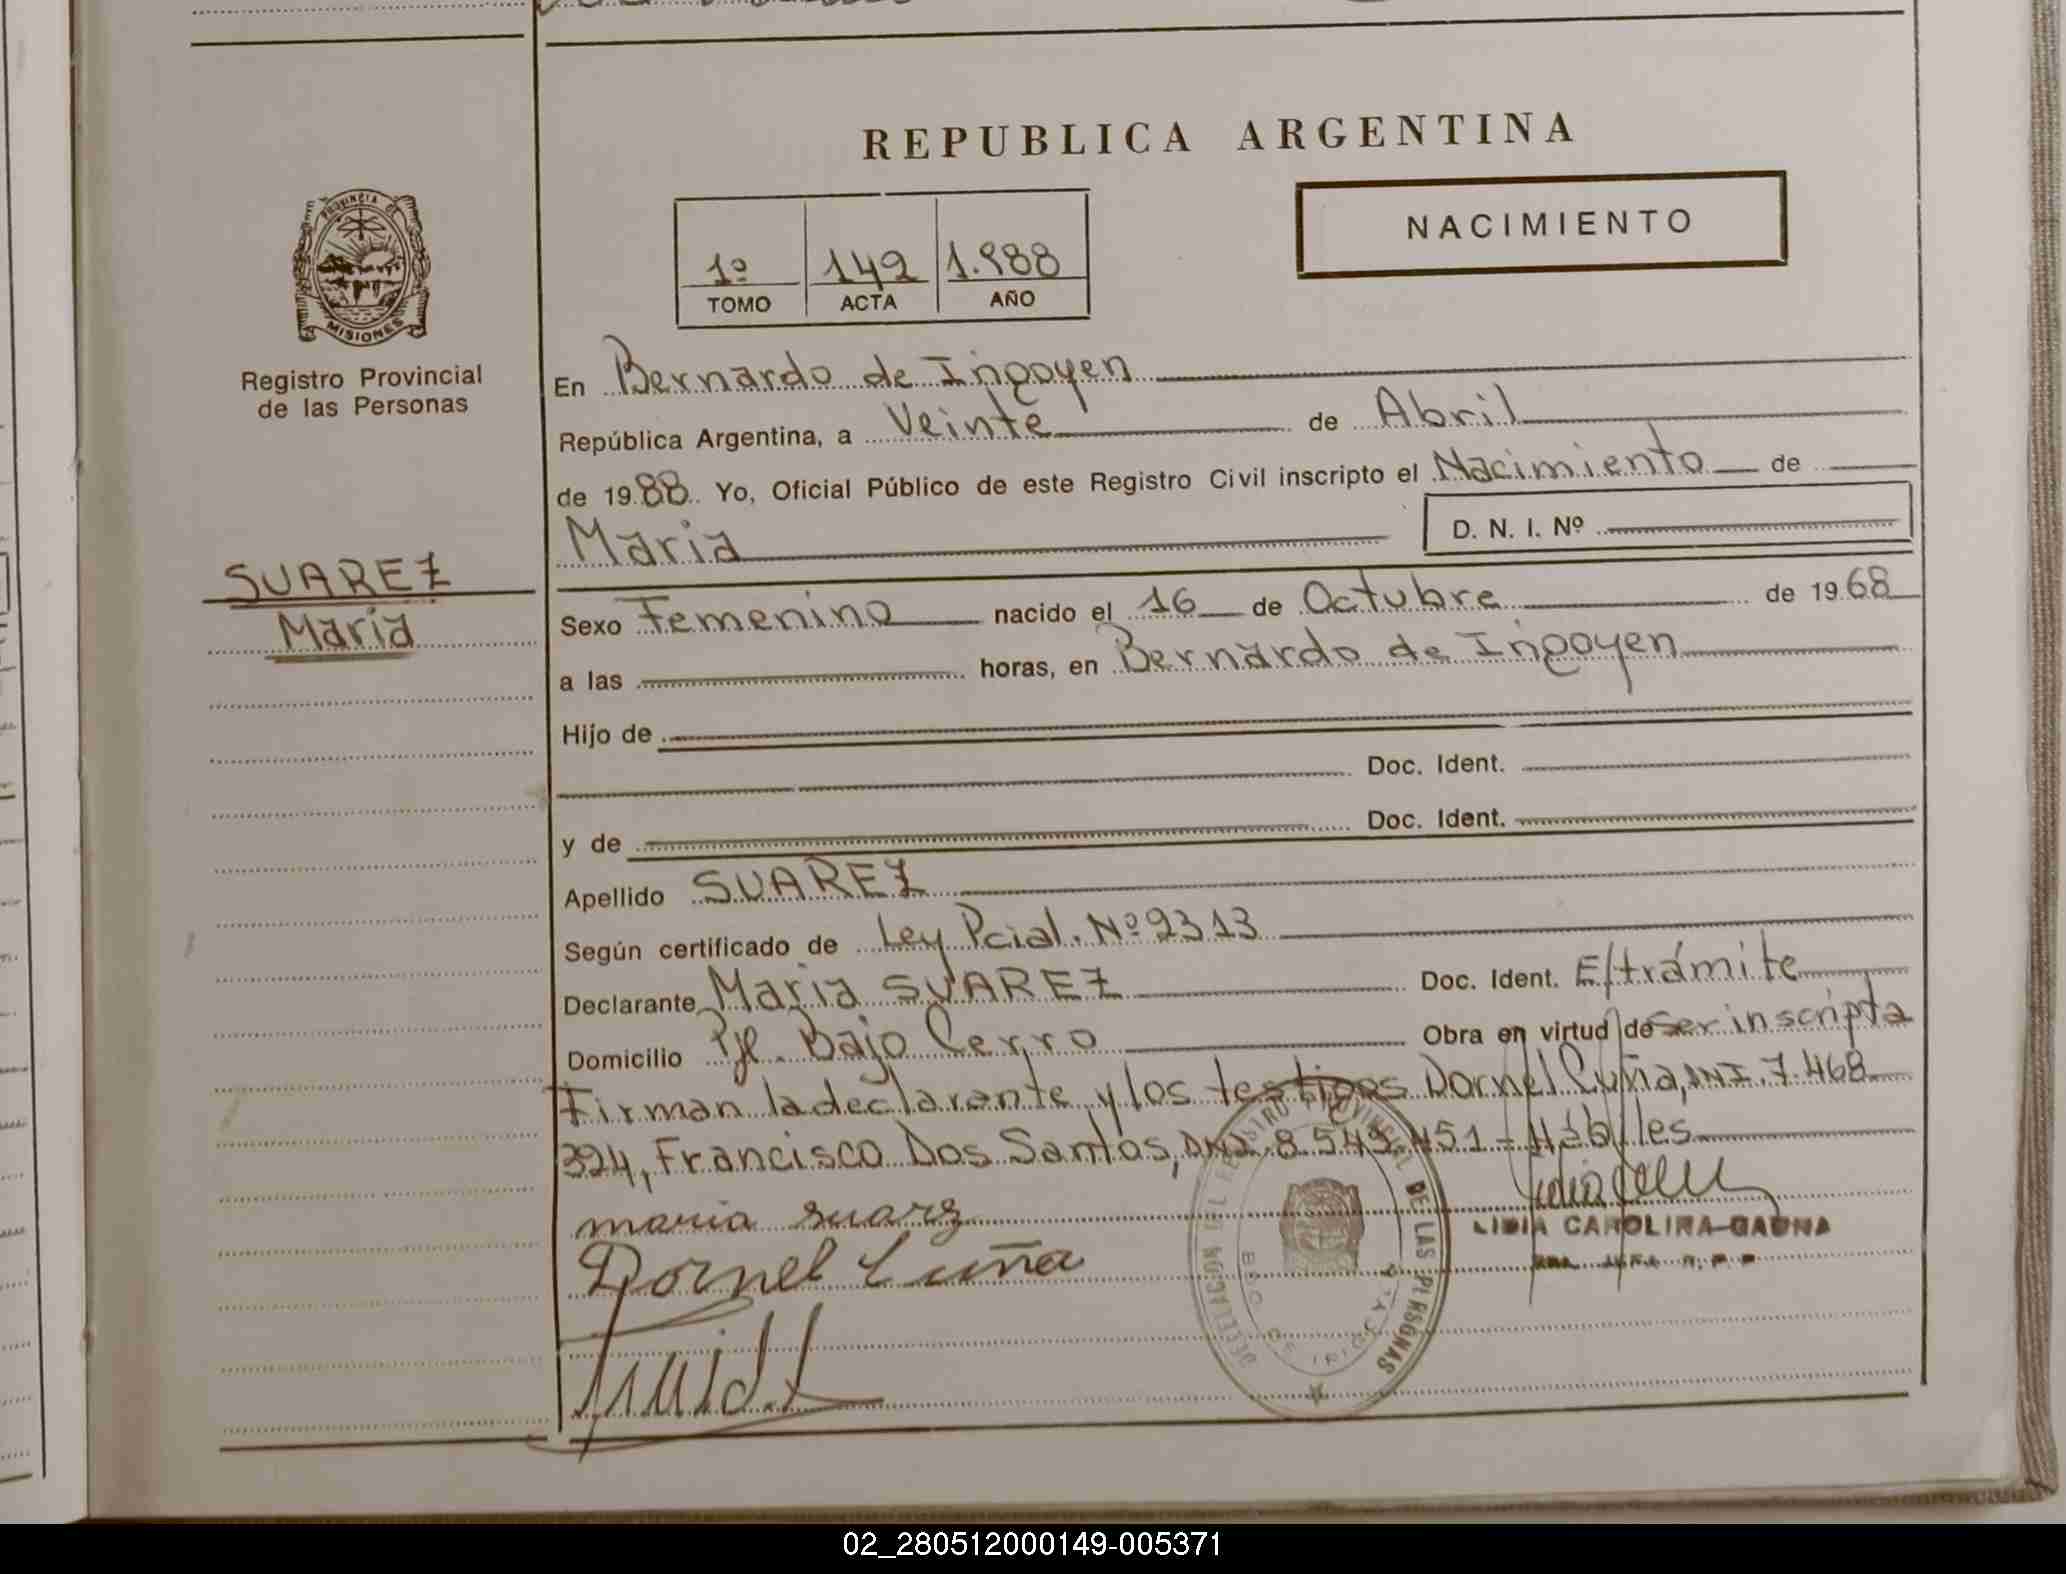 REPUBLICA ARGENTINA
NACIMIENTO
1º 142 1.988
TOMO ACTA AÑO
PROVINCIA DE
MISIONES
Registro Provincial
de las Personas
SUAREZ
Maria
En Bernardo de Irigoyen
República Argentina, a Veinte de Abril
de 1988 Yo, Oficial Público de este Registro Civil inscripto el Nacimiento de
Maria D. N. I. Nº
Sexo Femenino nacido el 16 de Octubre de 1968
a las horas, en Bernardo de Irigoyen
Hijo de
Doc. Ident.
y de Doc. Ident.
Apellido SUAREZ
Según certificado de Ley Pcial. Nº 2313
Declarante Maria SUAREZ Doc. Ident. E/trámite
Domicilio Pje. Bajo Cerro Obra en virtud de ser inscripta
Firman la declarante y los testigos Dornel Cuña, DNI. 7.468
324, Francisco Dos Santos, DNI. 8.549.451 - Hábiles
maria suarez
Dornel Cuña
LIDIA CAROLINA GAUNA
DELEGACION DEL REGISTRO PROVINCIAL DE LAS PERSONAS
BDO. DE IRIGOYEN
02_280512000149-005371